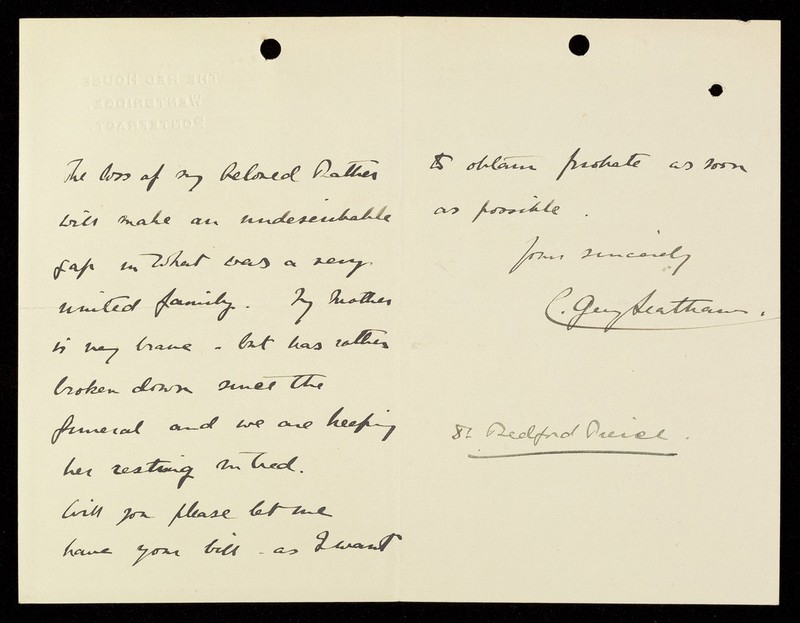 THE RED HOUSE
WENTBRIDGE,
PONTEFRACT.
The loss of my beloved Father
will make an undescribable
gap in what was a very
united family. My Mother
is very brave - but has rather
broken down since the
funeral and we are keeping
her resting in bed.
Will you please let me
have your bill - as I want
to obtain probate as soon
as possible.
Yours sincerely
C. Guy
Dr. Bedford Pierce.